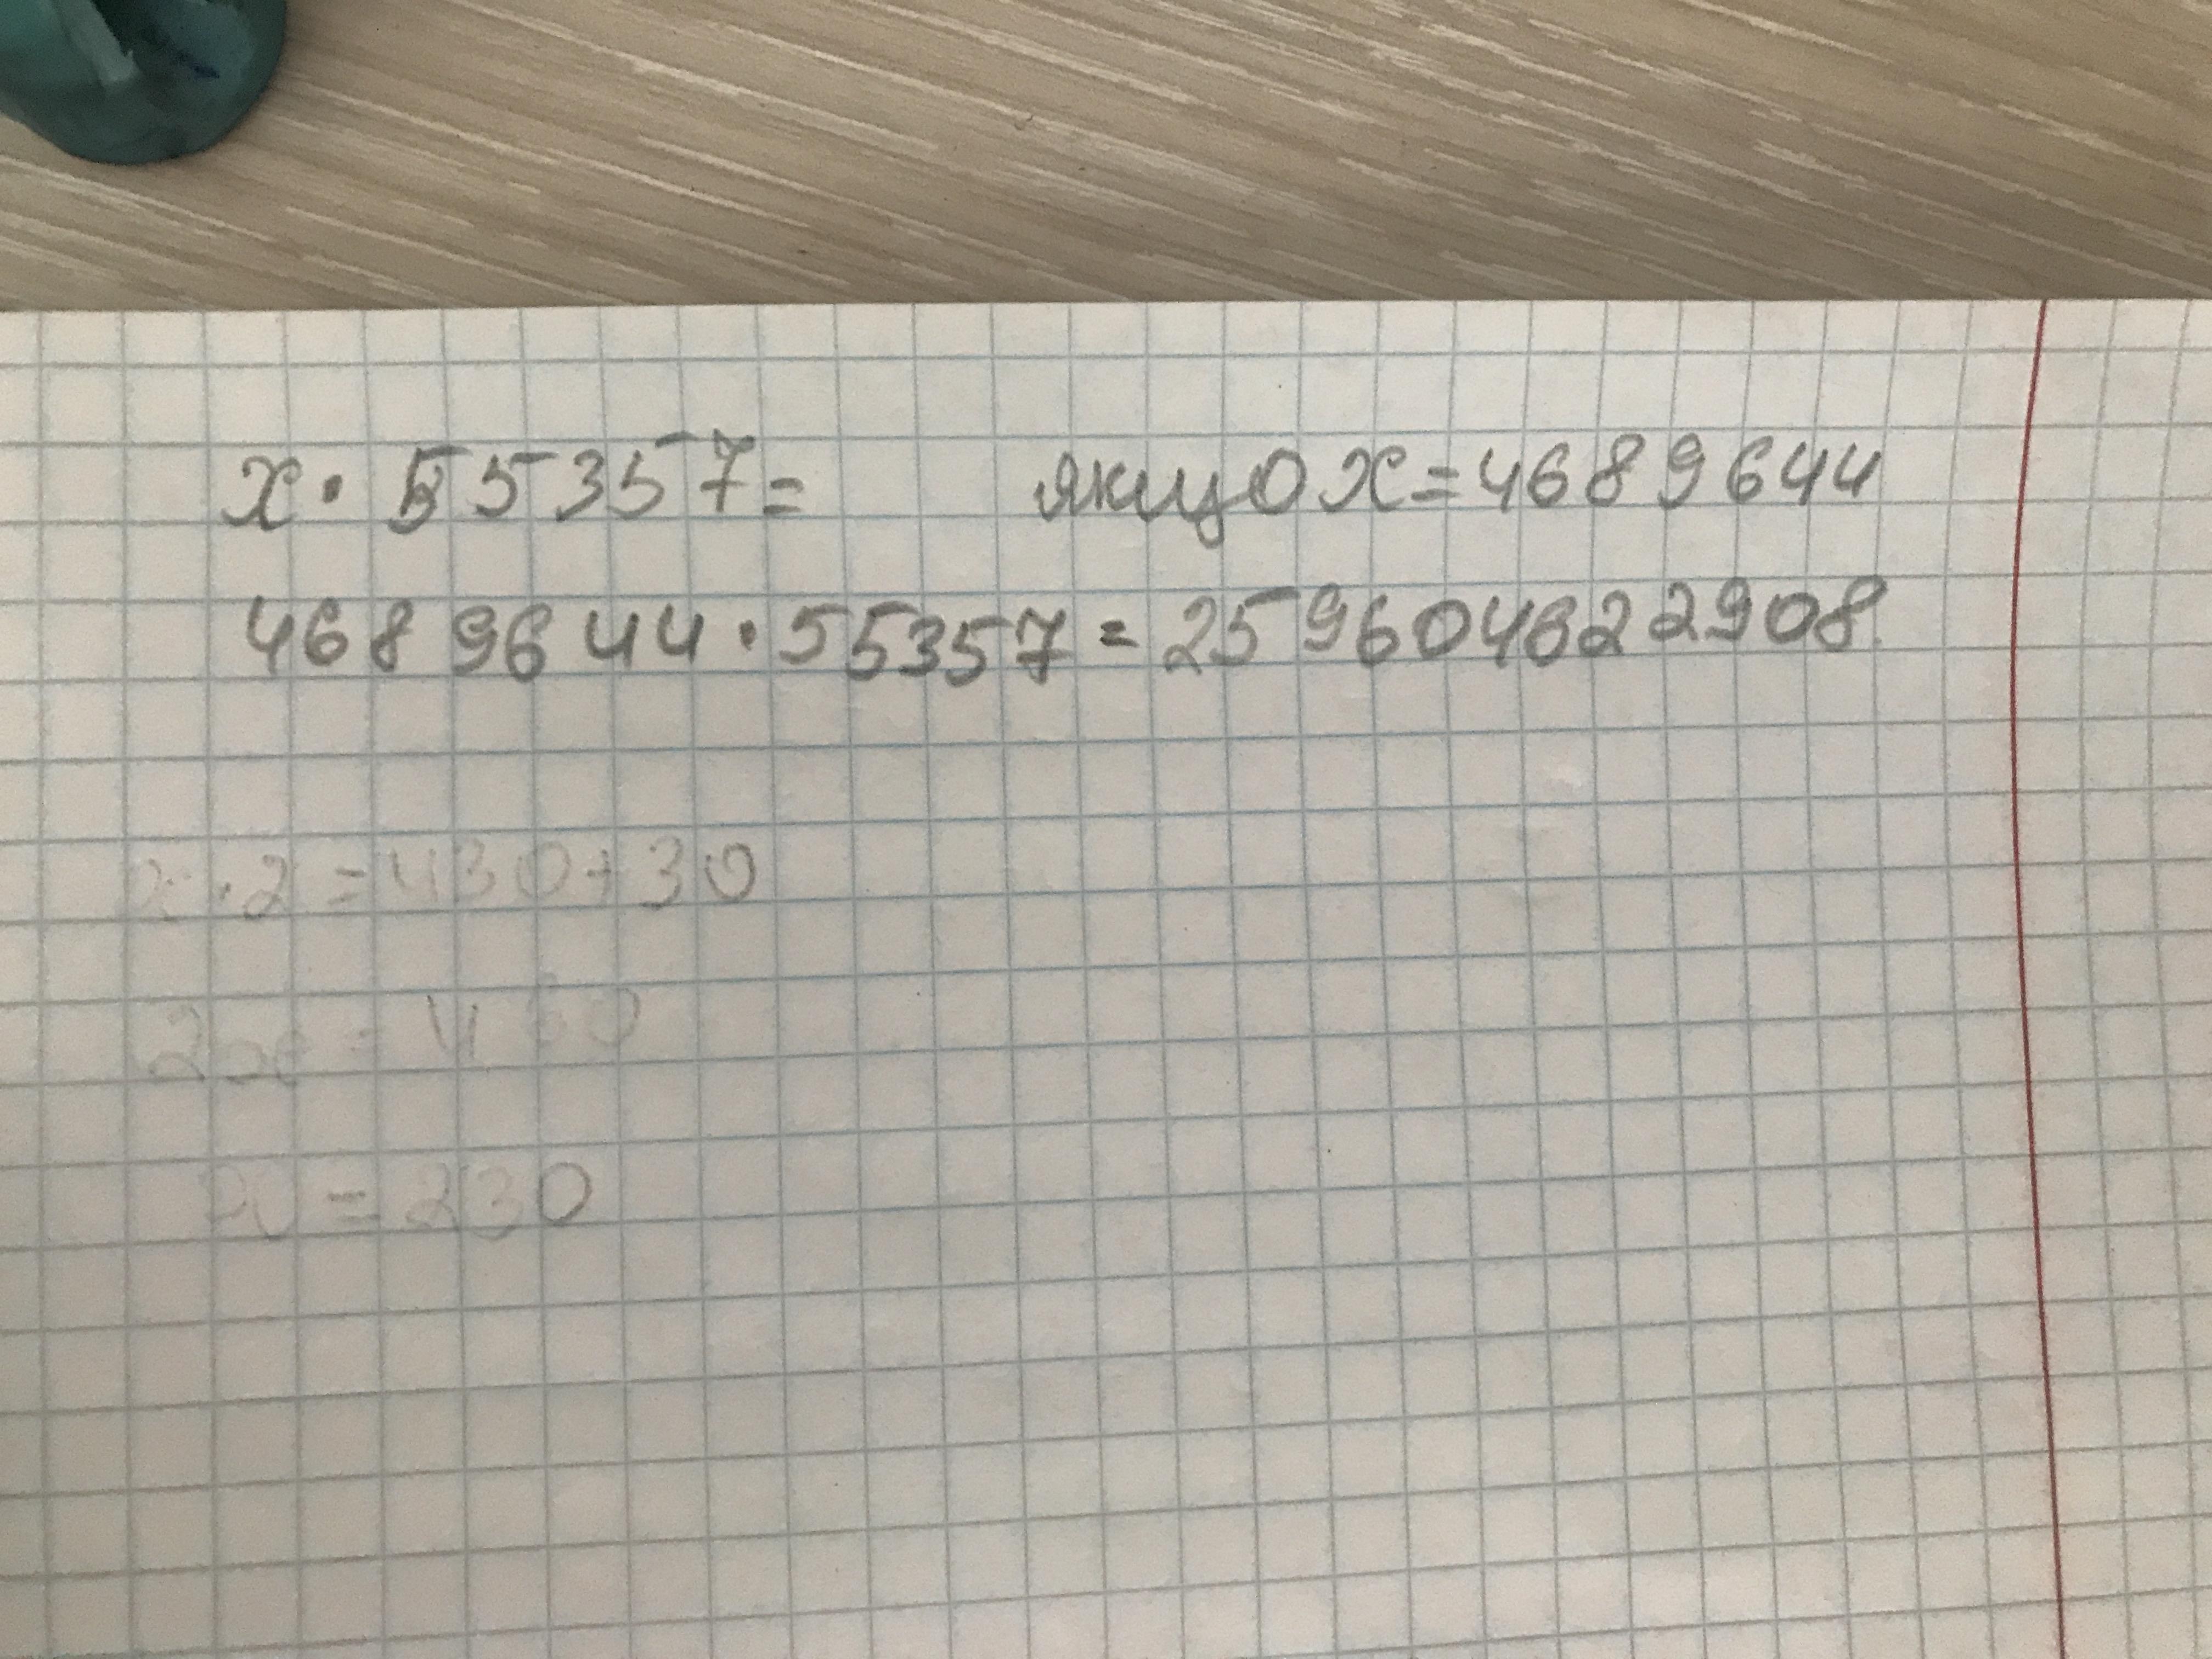 x · 55357 = якщо x = 4689644
4689644 · 55357 = 259604622908
x · 2 = 430 + 30
2x = 460
x = 230